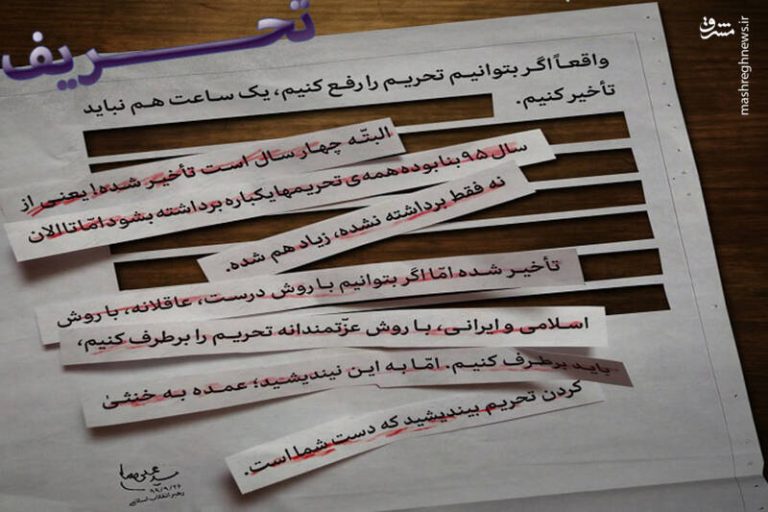 تحریف
مشرق
mashreghnews.ir
واقعاً اگر بتوانیم تحریم را رفع کنیم، یک ساعت هم نباید
تأخیر کنیم.
البتّه چهار سال است تأخیر شده! یعنی از
سال ۹۵ بنا بوده همه‌ی تحریمها یکباره برداشته بشود امّا تا الان
نه فقط برداشته نشده، زیاد هم شده.
تأخیر شده امّا اگر بتوانیم با روش درست، عاقلانه، با روش
اسلامی و ایرانی، با روش عزّتمندانه تحریم را برطرف کنیم،
باید برطرف کنیم. امّا به این نیندیشید؛ عمده به خنثیٰ
کردن تحریم بیندیشید که دست شما است.
۹۹/۹/۲۶
رهبر انقلاب اسلامی